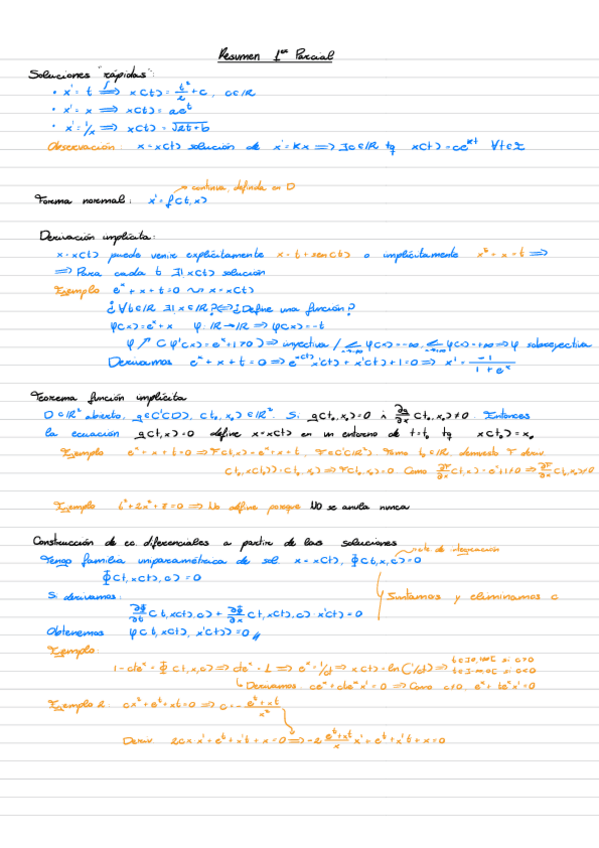 Resumen 1er Parcial
Soluciones "rápidas":
• x' = t ⟹ x(t) = t²/2 + c, c∈ℝ
• x' = x ⟹ x(t) = ae^t
• x' = 1/x ⟹ x(t) = √(2t+b)
Observación: x = x(t) solución de x' = Kx ⟹ ∃c∈ℝ tq x(t) = ce^{Kt} ∀t∈I
→ continua, definida en D
Forma normal: x' = f(t,x)
Derivación implícita:
x = x(t) puede venir explícitamente x = t + sen(t) o implícitamente ⟹
⟹ Para cada t ∃! x(t) solución
Ejemplo e^x + x + t = 0 ⇝ x = x(t)
¿∀t∈ℝ ∃! x∈ℝ? ⟺ ¿Define una función?
φ(x) = e^x + x φ: ℝ→ℝ ⟹ φ(x) = -t
φ ↗ (φ'(x) = e^x + 1 > 0) ⟹ inyectiva / lim φ(x) = -∞, lim φ(x) = +∞ ⟹ φ sobreyectiva
Derivamos e^x + x + t = 0 ⟹ e^{x(t)} x'(t) + x'(t) + 1 = 0 ⟹ x' = -1/(1 + e^x)
Teorema función implícita
D∈ℝ² abierto, g∈C¹(D), (t₀,x₀)∈ℝ². Si g(t₀,x₀) = 0 ∧ ∂g/∂x (t₀,x₀) ≠ 0. Entonces
la ecuación g(t,x) = 0 define x = x(t) en un entorno de t = t₀ tq x(t₀) = x₀
Ejemplo e^x + x + t = 0 ⟹ F(t,x) = e^x + x + t, F∈C¹(ℝ²). Tomo t₀∈ℝ,
Como ∂F/∂x (t,x) = e^x + 1 ≠ 0 ⟹ ∂F/∂x (t₀,x₀) ≠ 0
Ejemplo t² + 2x² + 8 = 0 ⟹ No define porque NO se anula nunca
Construcción de ec. diferenciales a partir de las soluciones
→ cte. de integración
Tengo familia uniparamétrica de sol. x = x(t), Φ(t,x,c) = 0
Φ(t, x(t), c) = 0
Si derivamos:
Juntamos y eliminamos c
∂Φ/∂t (t, x(t), c) + ∂Φ/∂x (t, x(t), c) · x'(t) = 0
Obtenemos φ(t, x(t), x'(t)) = 0 //
Ejemplo:
1 - cte^x = Φ(t,x,c) ⟹ cte^x = 1 ⟹ e^x = 1/ct ⟹ x(t) = ln(1/ct) ⟹ t∈]0,+∞[ si c>0
t∈]-∞,0[ si c<0
↳ Derivamos: ce^x + cte^x x' = 0 ⟹ Como c≠0, e^x + te^x x' = 0
Ejemplo 2: cx² + e^t + xt = 0 ⟹ c = -(e^t + xt)/x²
Deriv 2cx x' + e^t + x't + x = 0 ⟹ -2 (e^t + xt)/x x' + e^t + x't + x = 0